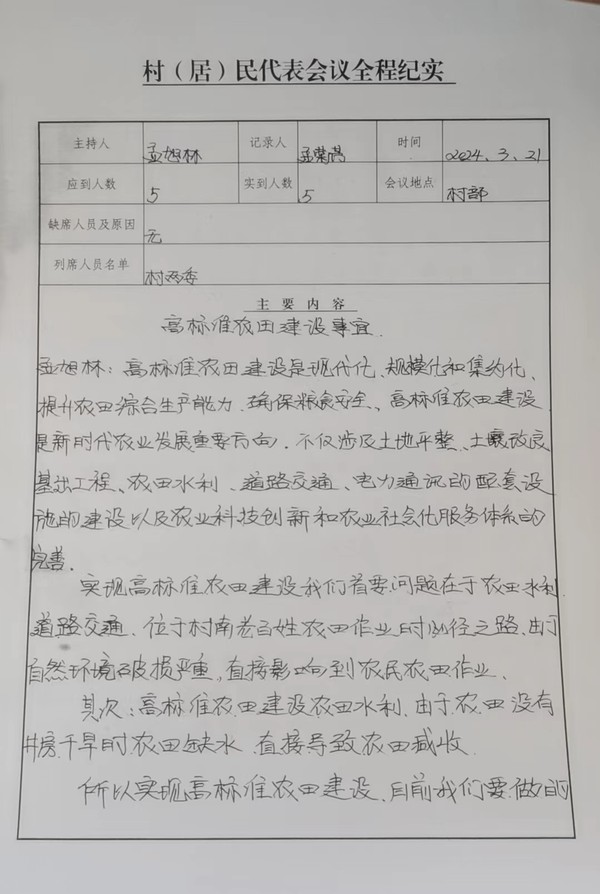 村（居）民代表会议全程纪实
主持人 孟旭林 记录人 孟 时间 2024.3.21
应到人数 5 实到人数 5 会议地点 村部
缺席人员及原因 无
列席人员名单 村两委
主要内容
高标准农田建设事宜.
孟旭林：高标准农田建设是现代化、规模化和集约化、
提升农田综合生产能力、确保粮食安全、高标准农田建设
是新时代农业发展重要方向，不仅涉及土地平整、土壤改良
基础工程、农田水利、道路交通、电力通讯的配套设
施的建设以及农业科技创新和农业社会化服务体系的
完善.
实现高标准农田建设我们首要问题在于农田水利
道路交通，位于村南老百姓农田作业时必径之路，由于
自然环境破损严重，直接影响到农民农田作业、
其次：高标准农田建设农田水利，由于农田没有
井房干旱时农田缺水，直接导致农田减收
所以实现高标准农田建设、目前我们要做的